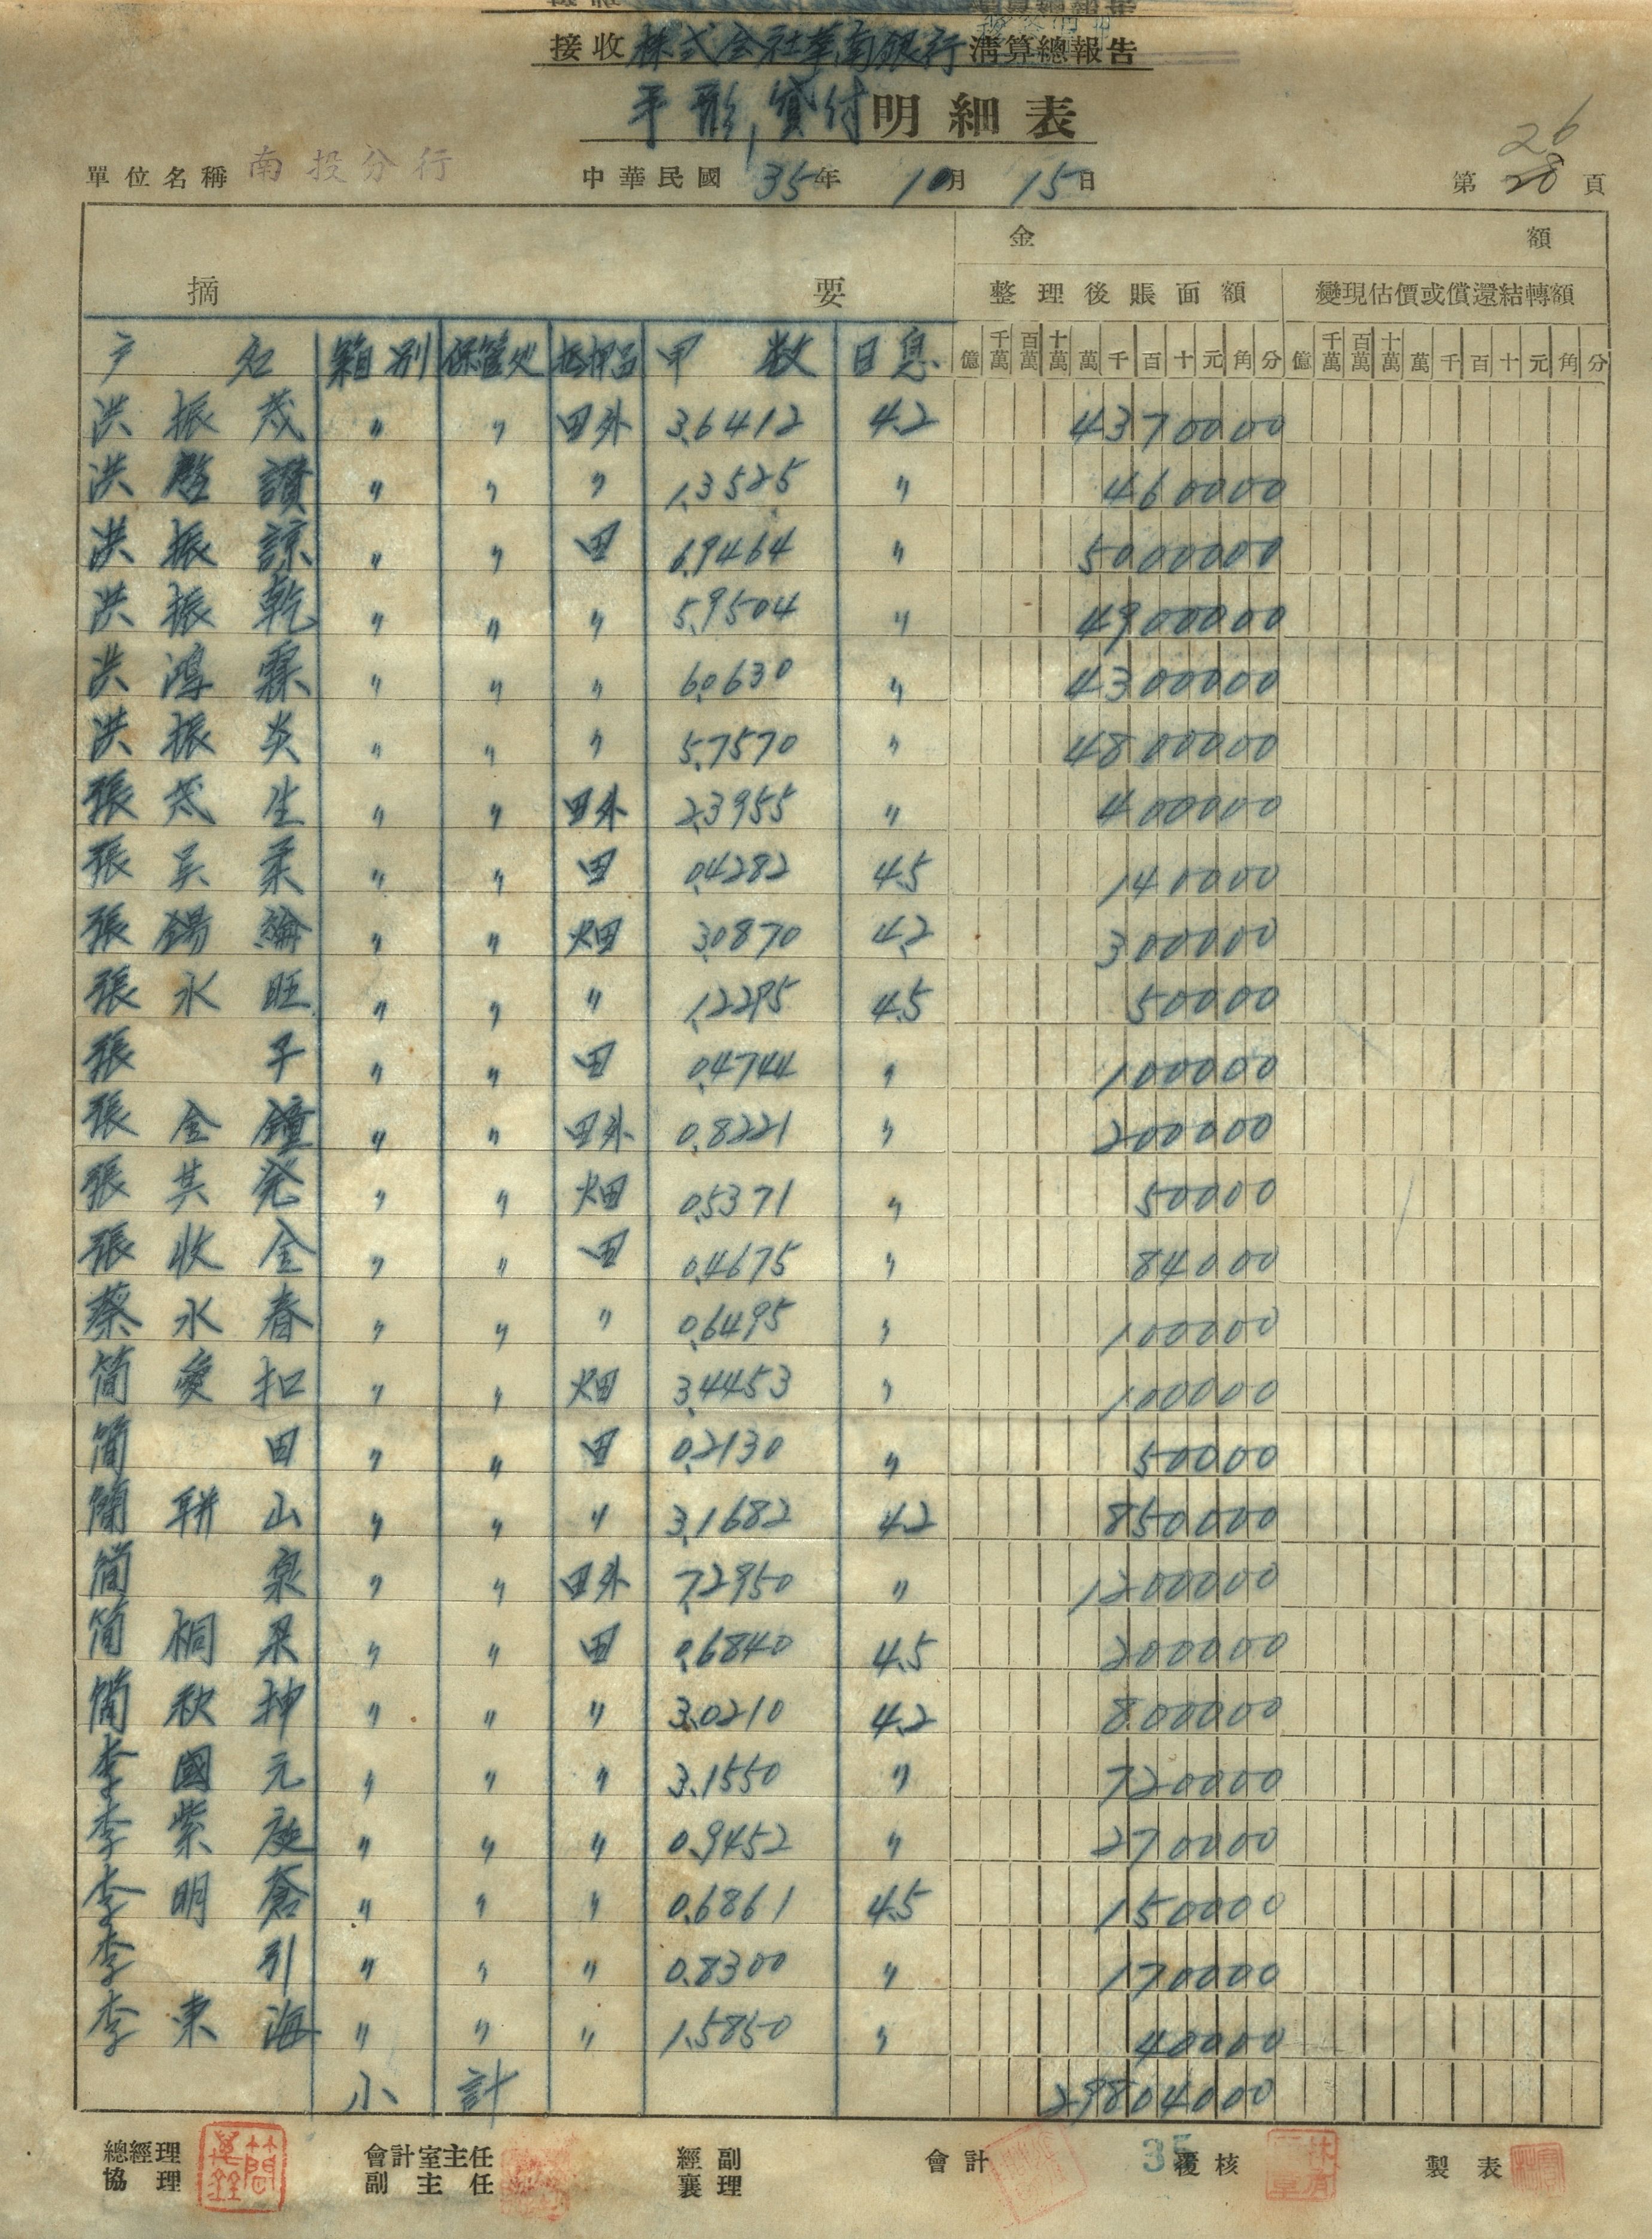 接收株式会社華南銀行清算總報告
手形貸付明細表
單位名稱 南投分行 中華民國35年10月15日 第26 28頁
摘要 金額
整理後賬面額 變現估價或償還結轉額
戶名 類別 保管処 抵押品 甲数 日息 億 千萬 百萬 十萬 萬 千 百 十 元 角 分 億 千萬 百萬 十萬 萬 千 百 十 元 角 分
洪振茂 〃 〃 田外 3.6412 4.2 4370000
洪 讚 〃 〃 〃 1.3525 〃 460000
洪振諒 〃 〃 田 6.9464 〃 5000000
洪振乾 〃 〃 〃 5.9504 〃 4900000
洪鴻霖 〃 〃 〃 6.0630 〃 4300000
洪振炎 〃 〃 〃 5.7570 〃 4800000
張茂生 〃 〃 田外 2.3955 〃 400000
張吳柔 〃 〃 田 0.4282 4.5 140000
張錫綸 〃 〃 畑 3.0870 4.2 300000
張水旺 〃 〃 〃 1.2295 4.5 50000
張子 〃 〃 田 0.4744 〃 100000
張金鐘 〃 〃 田外 0.8221 〃 200000
張其発 〃 〃 畑 0.5371 〃 50000
張收金 〃 〃 田 0.4675 〃 84000
蔡水春 〃 〃 〃 0.6495 〃 100000
簡愛扣 〃 〃 畑 3.4453 〃 100000
簡田 〃 〃 田 0.2130 〃 50000
簡聯山 〃 〃 〃 3.1682 4.2 850000
簡泉 〃 〃 田外 7.2950 〃 1200000
簡桐梁 〃 〃 田 0.6840 4.5 200000
簡秋坤 〃 〃 〃 3.0210 4.2 800000
李國元 〃 〃 〃 3.1550 〃 720000
李紫庭 〃 〃 〃 0.9452 〃 270000
李明蒼 〃 〃 〃 0.6861 4.5 150000
李引 〃 〃 〃 0.8300 〃 170000
李東海 〃 〃 〃 1.5850 〃 40000
小計 29804000
總經理 會計室主任 經副 會計 35 覆核 製表
協理 副主任 襄理